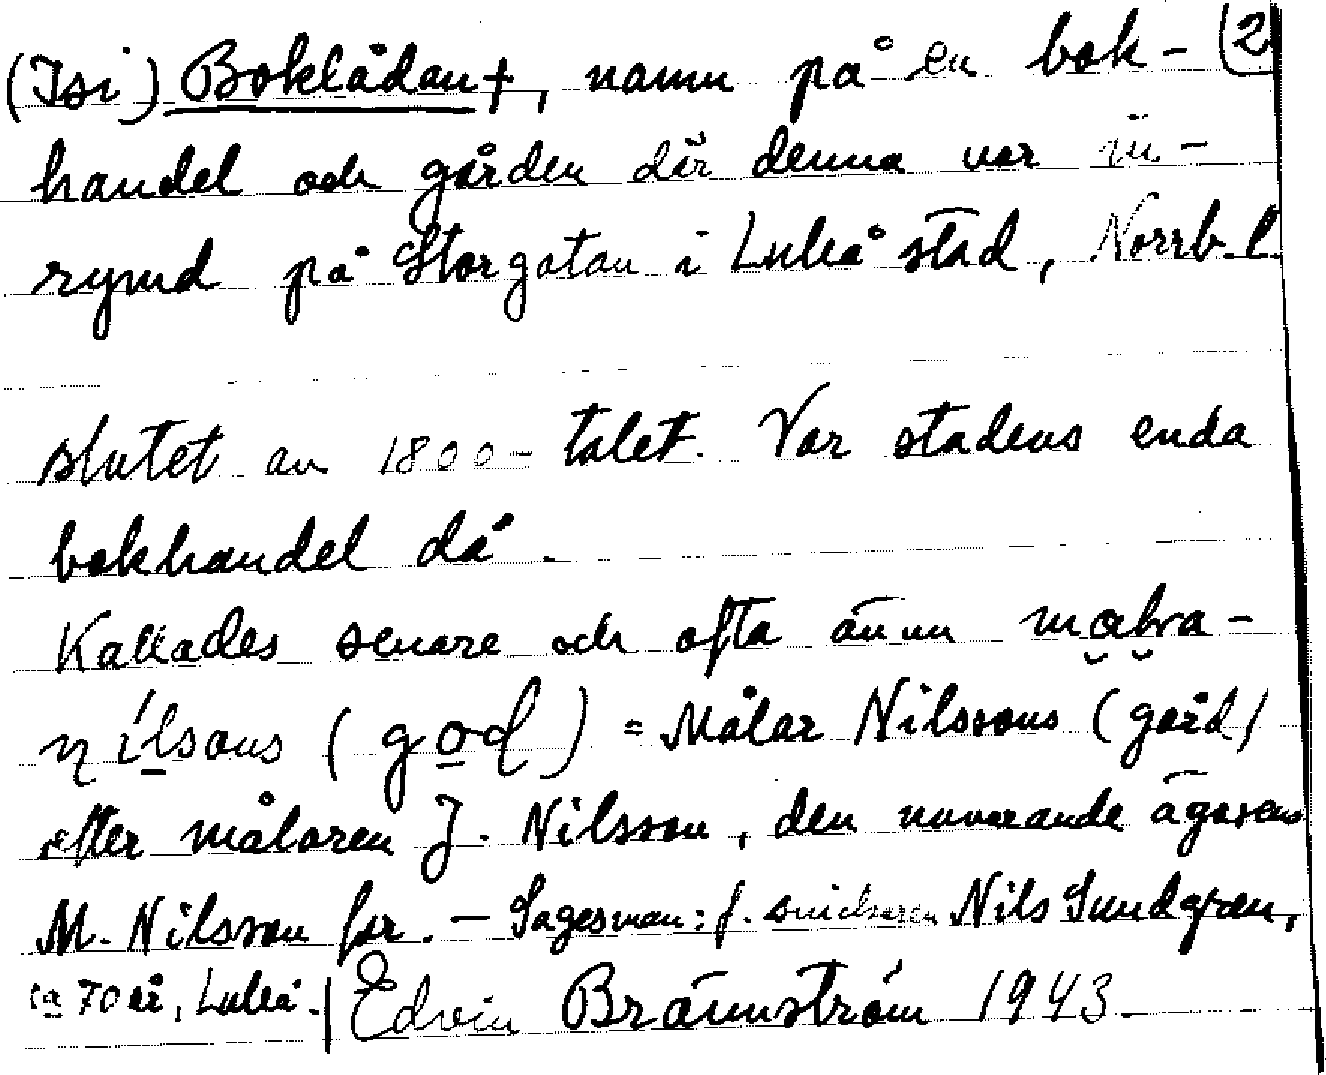 (Isi) Boklådan †, namn på en bok- (2
handel och gården där denna var in-
rymd på Storgatan i Luleå stad, Norrb. l.
slutet av 1800-talet. Var stadens enda
bokhandel då.
Kallades senare och ofta ännu
nílsons (god) = Målar Nilssons (gård)
efter målaren J. Nilsson, den nuvarande ägaren
M. Nilsson far. — Sagesman: f. snickaren Nils Sundgren,
ca 70 år, Luleå. | Edvin Brännström 1943